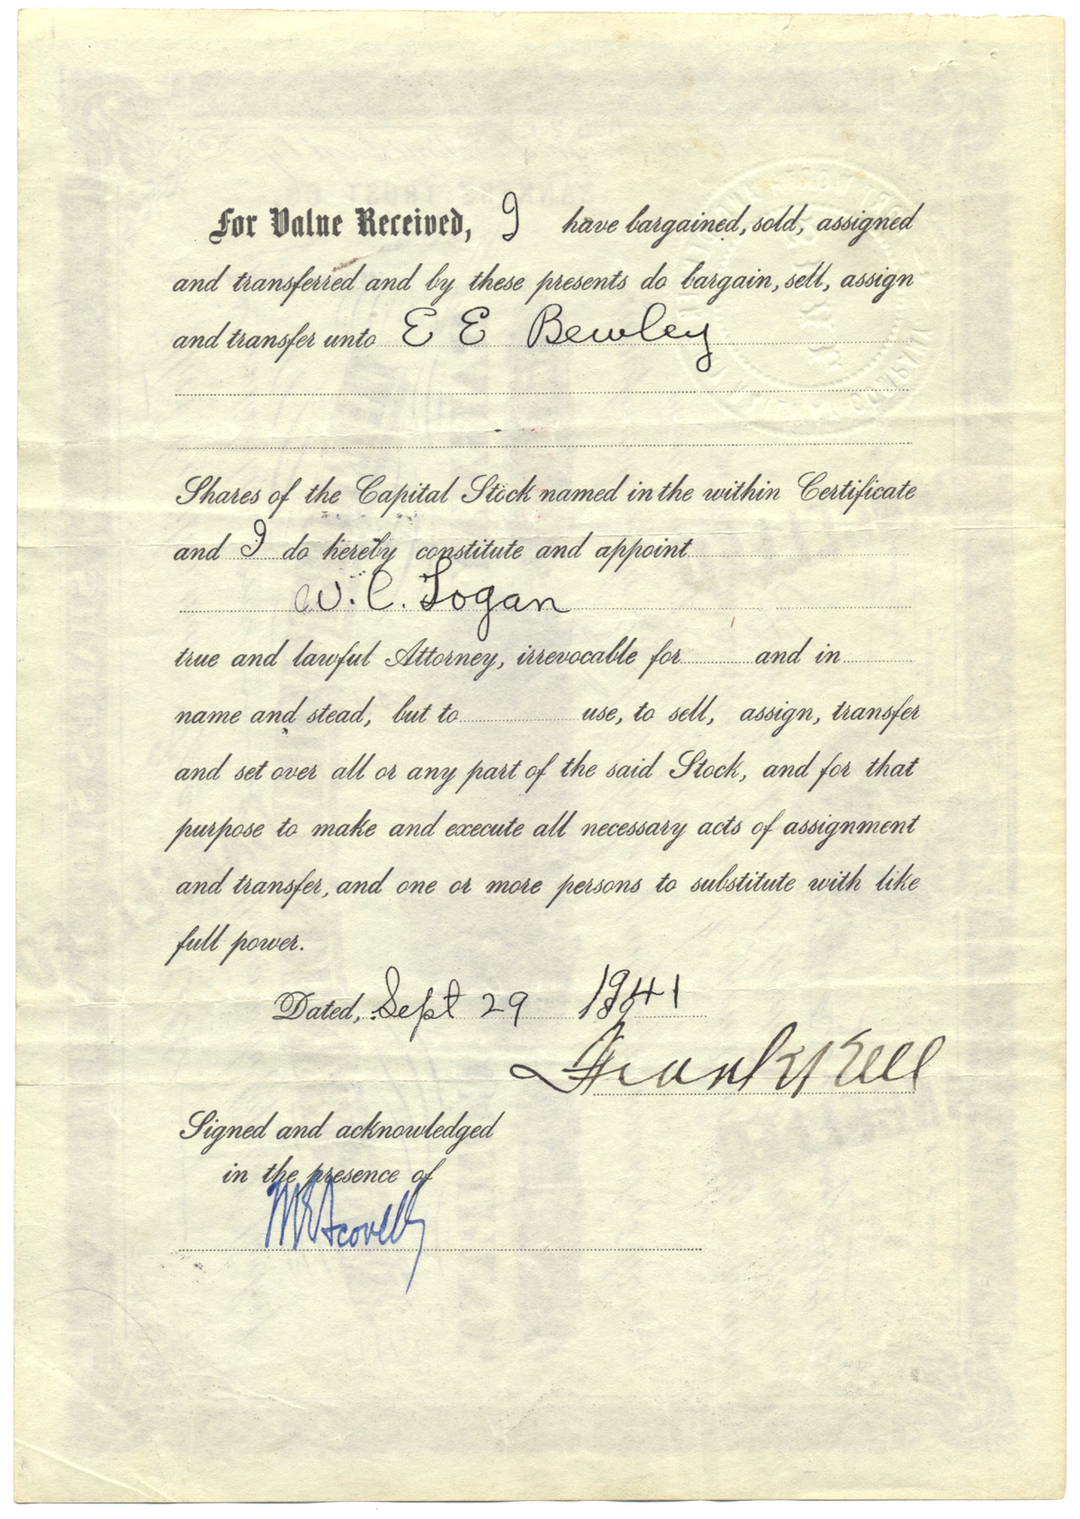 For Value Received, I have bargained, sold, assigned
and transferred and by these presents do bargain, sell, assign
and transfer unto E E Bewley
Shares of the Capital Stock named in the within Certificate
and I do hereby constitute and appoint
W. C. Logan
true and lawful Attorney, irrevocable for and in
name and stead, but to use, to sell, assign, transfer
and set over all or any part of the said Stock, and for that
purpose to make and execute all necessary acts of assignment
and transfer, and one or more persons to substitute with like
full power.
Dated, Sept 29 1941
Frank Kell
Signed and acknowledged
in the presence of